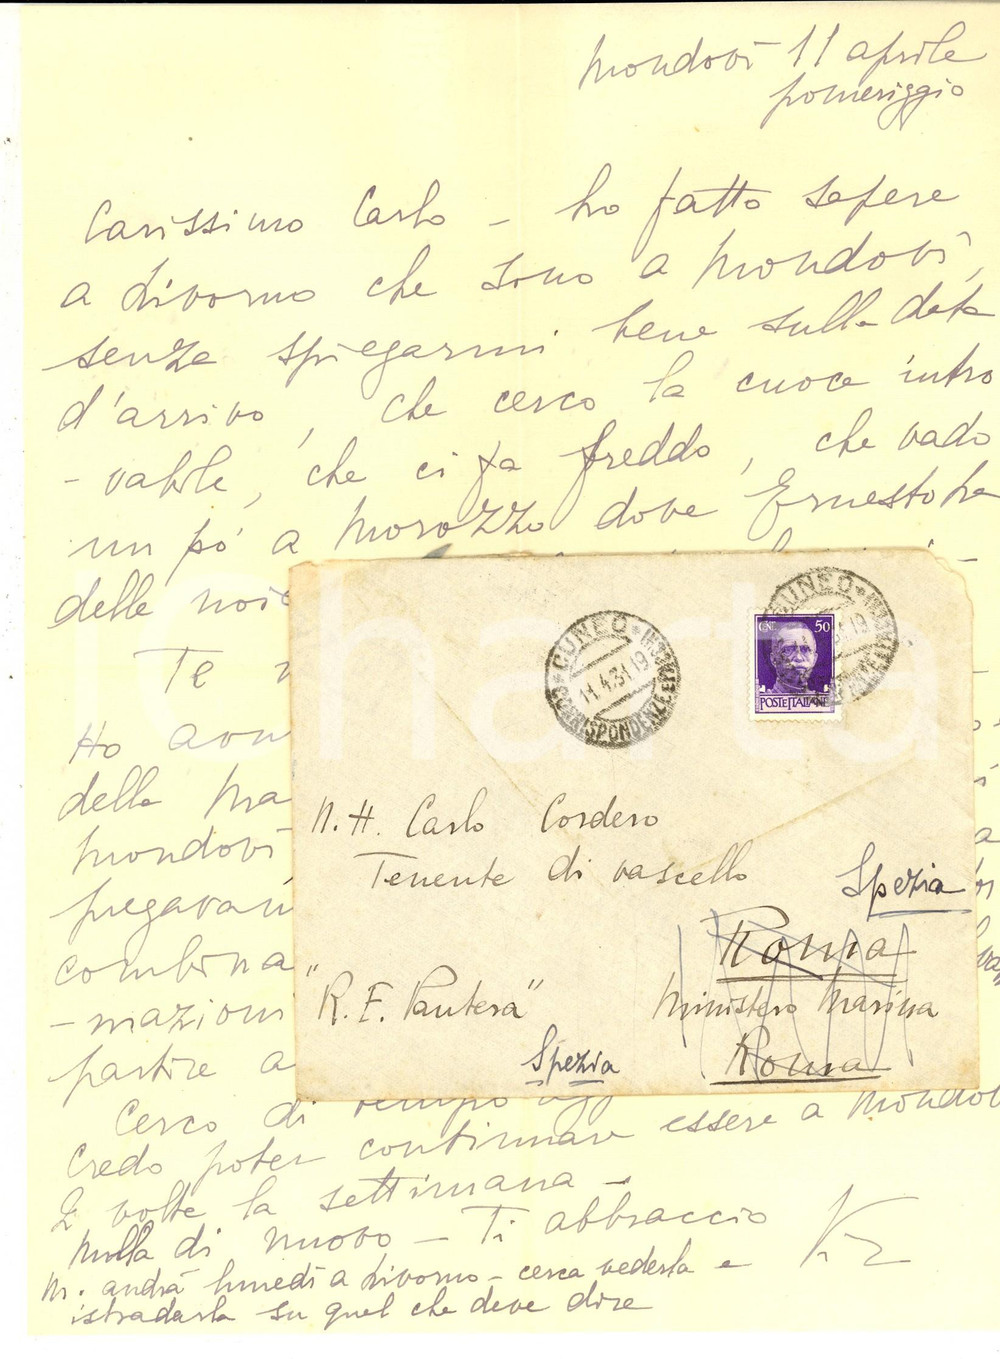 Mondovì 11 aprile
pomeriggio
Carissimo Carlo - ho fatto sapere
a Livorno che sono a Mondovì,
senza spiegarmi bene sulla data
d'arrivo, che cerco la cuoca intro
-vabile, che ci fa freddo, che vado
un pó a Morozzo dove Ernesto ha
delle noie
Te
Ho
della Ma
Mondovì
pregavan
combina
-mazioni
partire a
Cerco di tempo
Credo poter continuare essere a Mondovì
2 volte la settimana -
Nulla di nuovo - Ti abbraccio
M. andrà lunedì a Livorno - cerca vederla e
istradarla su quel che deve dire
CUNEO
11.4.31.19
CORRISPONDENZE
CUNEO
CENT. 50
POSTE ITALIANE
N. H. Carlo Cordero
Tenente di vascello
Spezia
Roma
"R. E. Pantera"
Ministero Marina
Spezia
Roma
charta